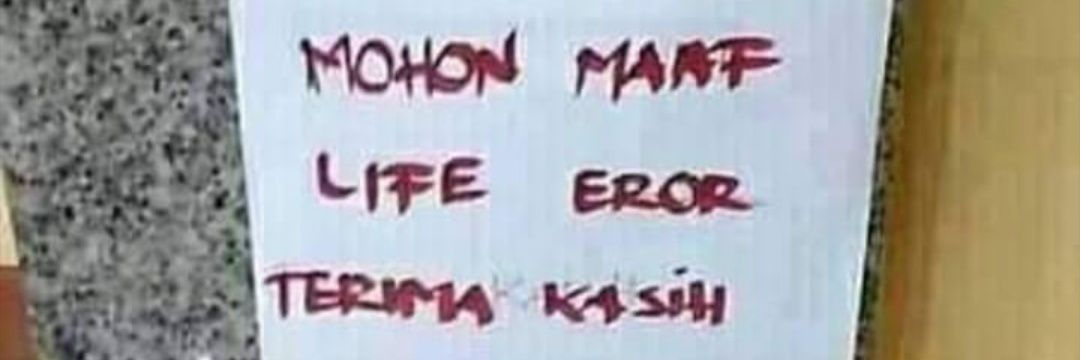 MOHON MAAF
LIFE EROR
TERIMA KASIH